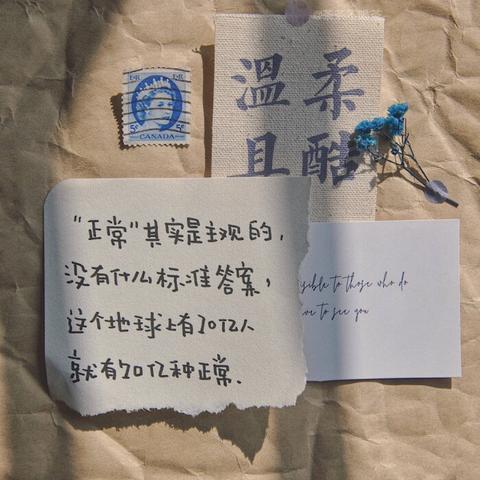 E R E R
5¢ CANADA 5¢
溫柔
且酷
“正常”其实是主观的,
没有什么标准答案,
这个地球上有70亿人
就有70亿种正常.
to those who do
to see you